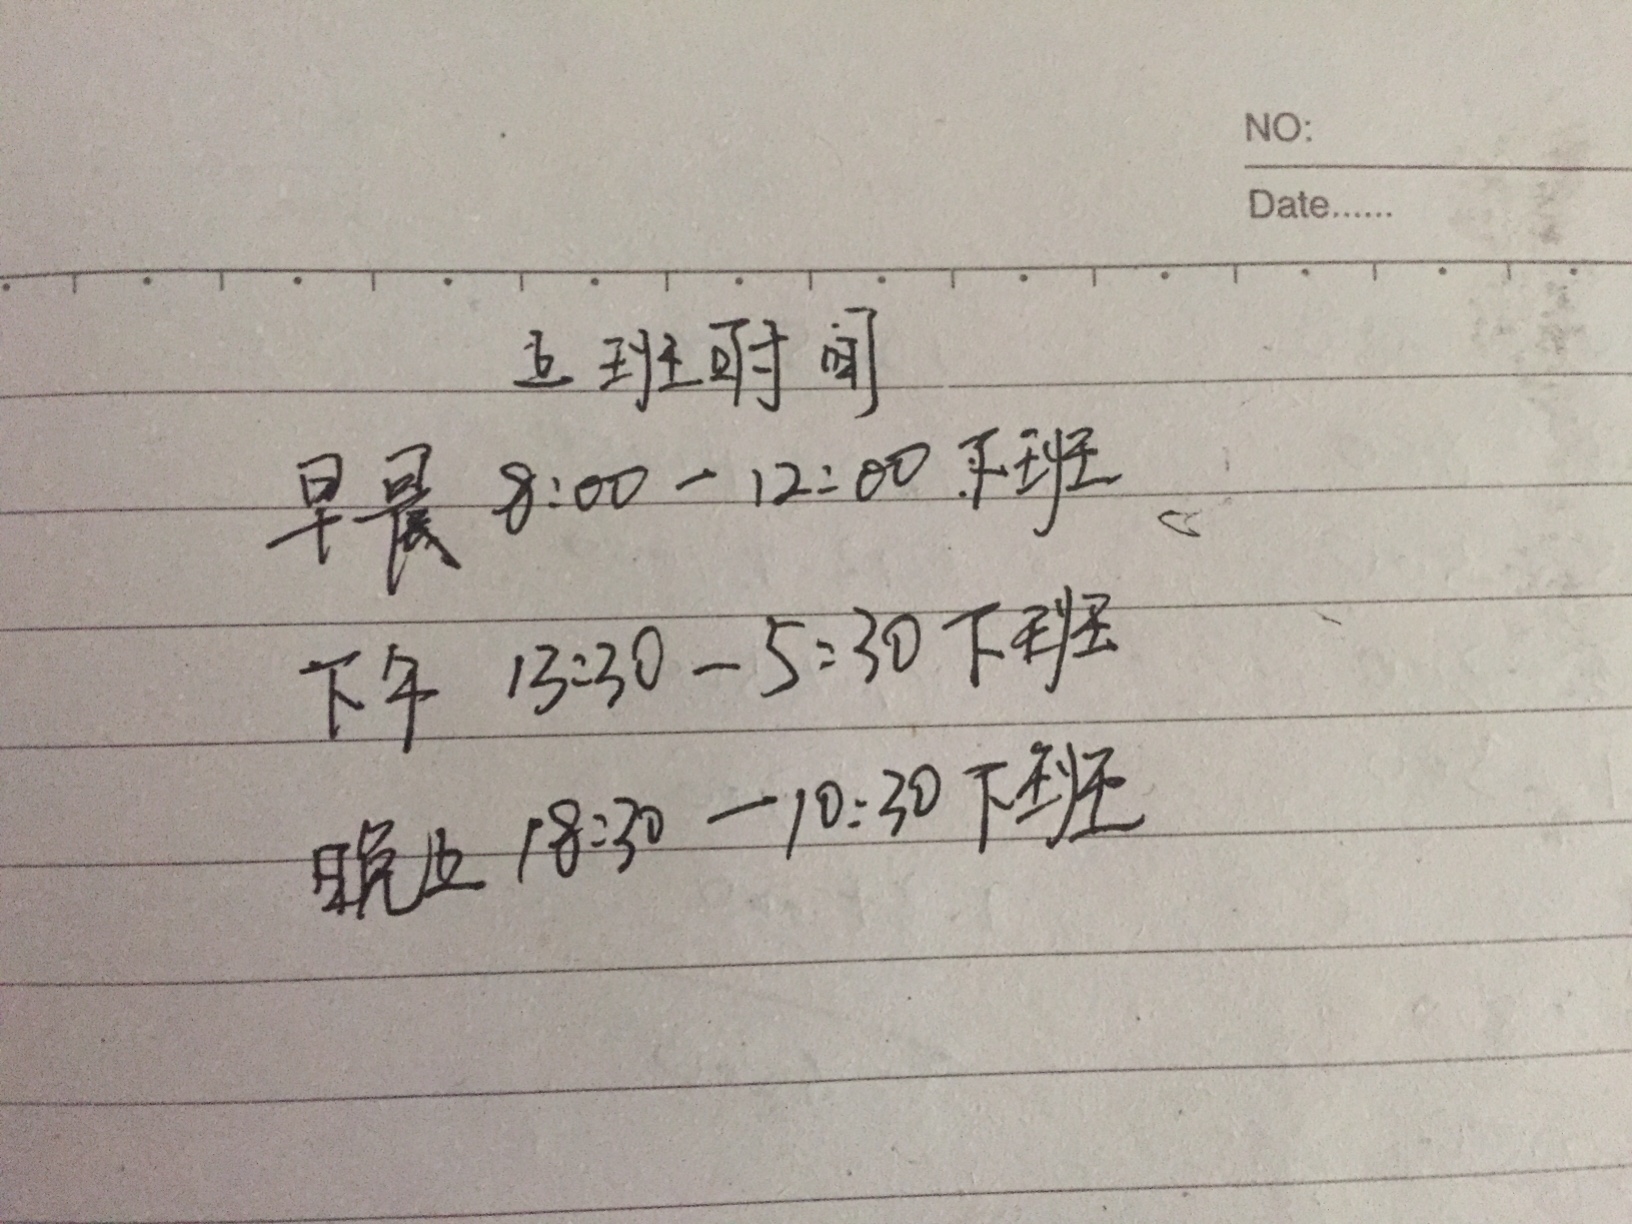 NO:
Date......
上班时间
早晨 8:00-12:00 下班
下午 13:30-5:30 下班
晚上 18:30-10:30 下班